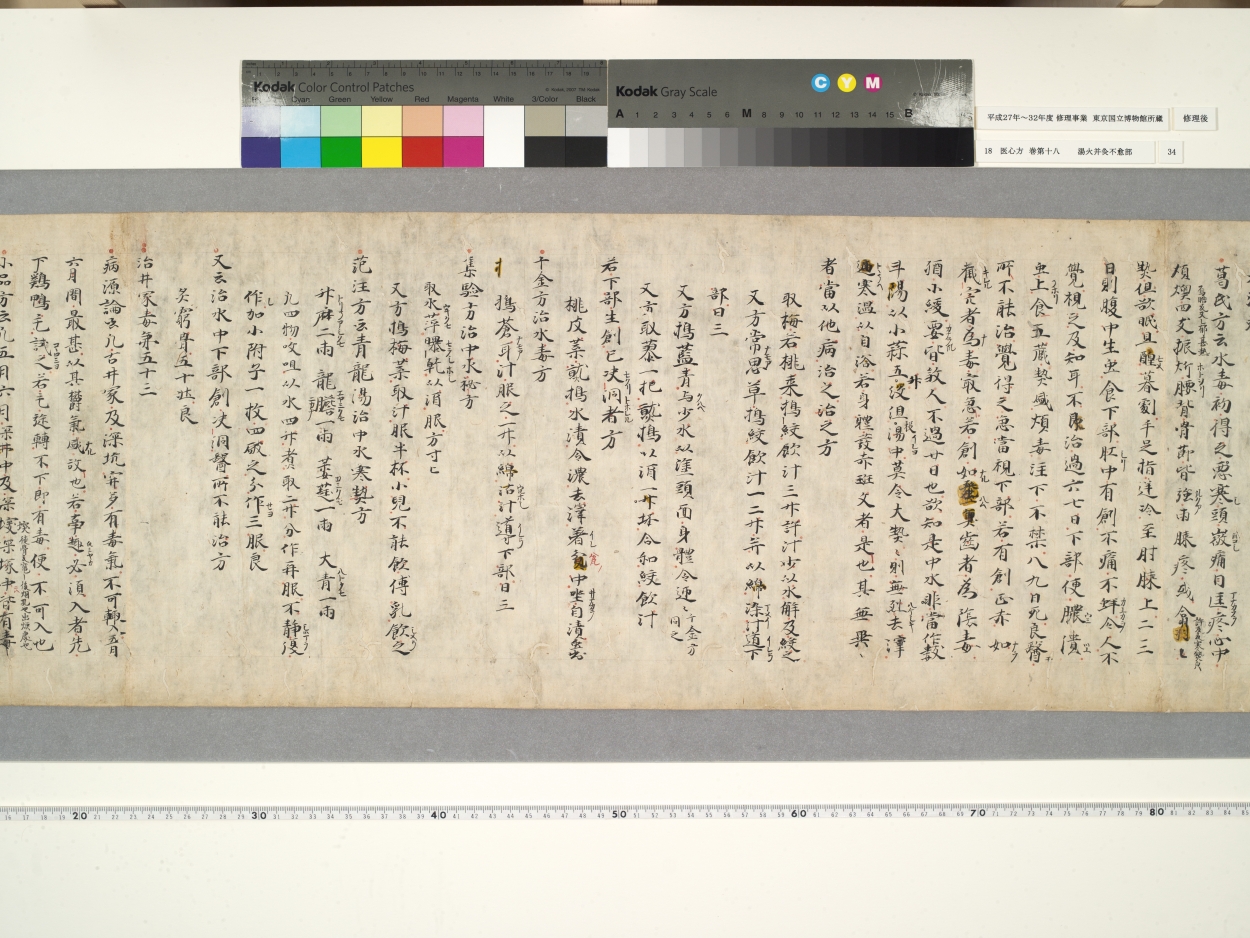 Kodak Color Control Patches
Blue Cyan Green Yellow Red Magenta White 3/Color Black
Kodak Gray Scale
C Y M
A 1 2 3 4 5 6 M 8 9 10 11 12 13 14 15 B
平成27年～32年度 修理事業 東京国立博物館所蔵
修理後
18 医心方 巻第十八 湯火并灸不愈部
34
葛氏方云水毒初得之悪寒頭微痛目匡疼心中
煩懊四支振炘腰背骨節皆強両膝疼或翕翕
熱但欲眠旦醒暮劇手足指逆冷至肘膝上二三
日則腹中生虫食下部肛中有創不痛不痒令人不
覚視之及知耳不良治過六七日下部便膿潰
虫上食五蔵熱盛煩毒注下不禁八九日死良醫
所不能治覺得之急當視下部若有創正赤如
截完者為毒最急若創如蠡魚齒者為陰毒
猶小緩要皆殺人不過廿日也欲知是中水非當作数
斗湯以小蒜五㕮但湯中莫令大熱々則無力去滓
適寒温以自浴若身體發赤斑文者是也其無異
者當以他病治之治之方
取梅若桃葉搗絞飲汁三升許汁少以水解及絞之
又方常思草搗絞飲汁一二升并以綿染汁導下
部日三
又方搗藍青与少水以塗頭面身體令迊々 千金方同之
又方取蓼一把搗以酒一升坏合和絞飲汁
若下部生創已决洞者方
桃皮葉就搗水漬令濃去滓著盆中坐自漬
千金方治水毒方
搗蒼耳汁服之一升以綿沾汁導下部日三
集驗方治中水秘方
取水萍曝乾以酒服方寸匕
又方搗梅葉取汁服半杯小兒不能飲傅乳飲之
范汪方云青龍湯治中水寒熱方
升麻二両 龍膽一両 葳蕤一両 大青一両
凡四物㕮咀以水四升煮取二升分作再服不静復
作加小附子一枚四破之分作三服良
又云治水中下部創决洞醫所不能治方
灸窮骨五十壮良
治井冢毒氣五十三
病源論云凡古井冢及深坑穽多有毒氣不可輙入五月
六月間最甚以其欝氣盛故也若事趣必須入者先
下鷄鴨毛試入若毛旋轉不下即有毒便不可入也
小品方云凡五月六月深井中及深塚深塚中皆有毒
10 20 30 40 50 60 70 80